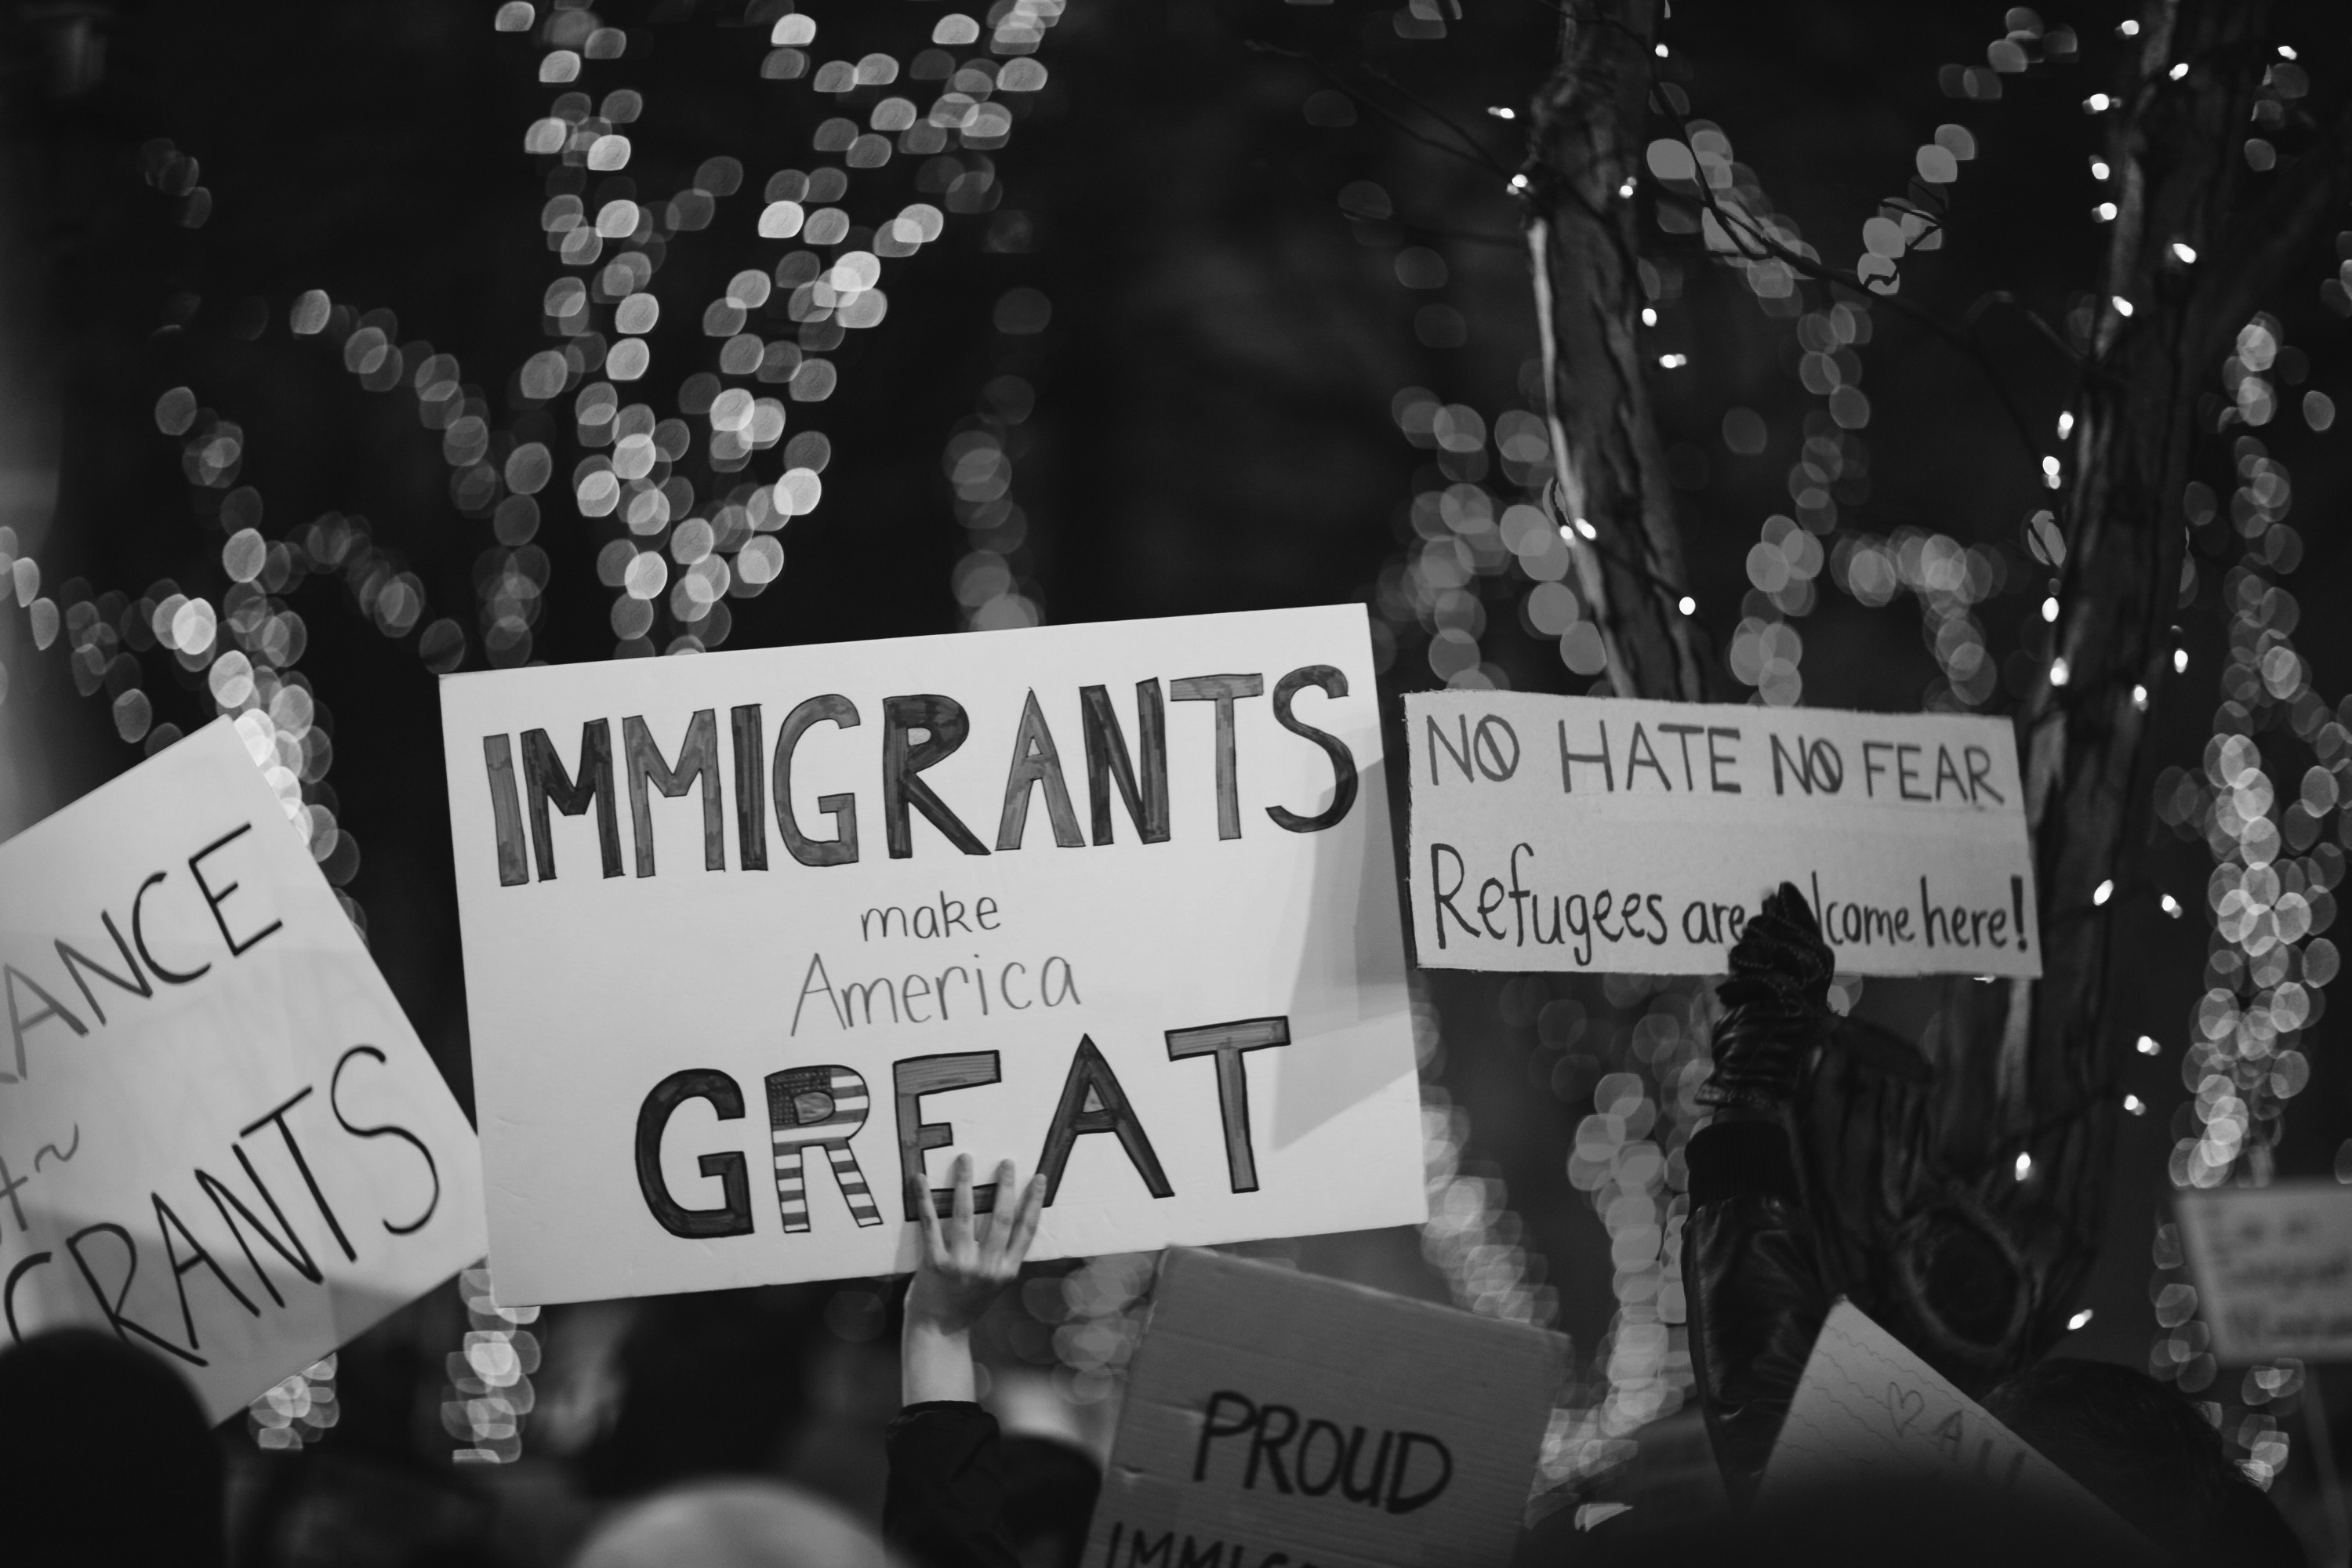 ANCE
GRANTS
IMMIGRANTS
make
America
GREAT
NO HATE NO FEAR
Refugees are lcome here!
PROUD
IMMIG
♡ ALL